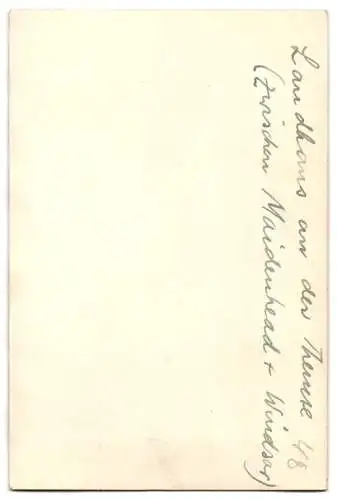 Landhaus an der Themse 48
(zwischen Maidenhead + Windsor)